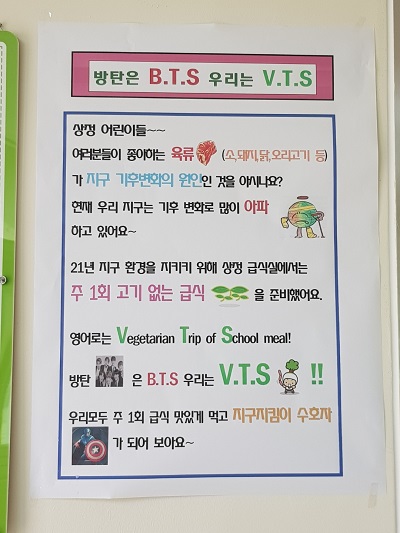 방탄은 B.T.S 우리는 V.T.S
상정 어린이들~~
여러분들이 좋아하는 육류 (소,돼지,닭,오리고기 등)
가 지구 기후변화의 원인인 것을 아시나요?
현재 우리 지구는 기후 변화로 많이 아파
하고 있어요~
21년 지구 환경을 지키키 위해 상정 급식실에서는
주 1회 고기 없는 급식 을 준비했어요.
영어로는 Vegetarian Trip of School meal!
방탄 은 B.T.S 우리는 V.T.S !!
우리모두 주 1회 급식 맛있게 먹고 지구지킴이 수호자
가 되어 보아요~